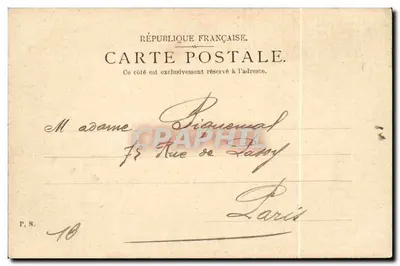 RÉPUBLIQUE FRANÇAISE.
CARTE POSTALE.
Ce côté est exclusivement réservé à l'adresse.
Madame
75 Rue de Passy
Paris
P. S.
18